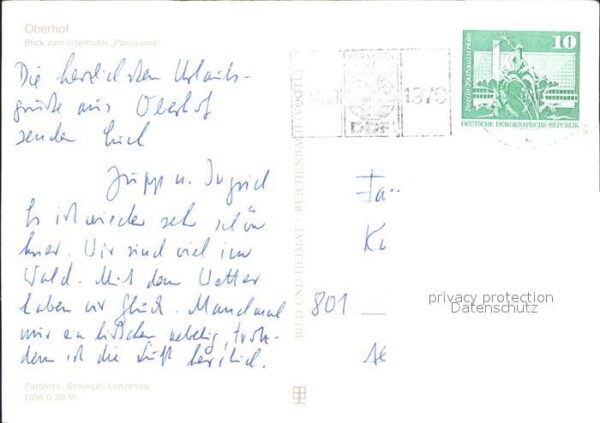 Oberhof
Blick zum Interhotel „Panorama"
Die herzlichsten Urlaubs-
grüße aus Oberhof
senden Euch
Jupp u. Ingrid
Es ist wieder sehr schön
hier. Wir sind viel im
Wald. Mit dem Wetter
haben wir Glück. Manchmal
nur ein bißchen nebelig, trotz-
dem ist die Luft herrlich.
Farbfoto: Schlegel, Lunzenau
DDR 0,20 M
BILD UND HEIMAT · REICHENBACH (VOGTL)
DDR
10
Berlin-Rathausstraße
DEUTSCHE DEMOKRATISCHE REPUBLIK
Fa
801
privacy protection
Datenschutz